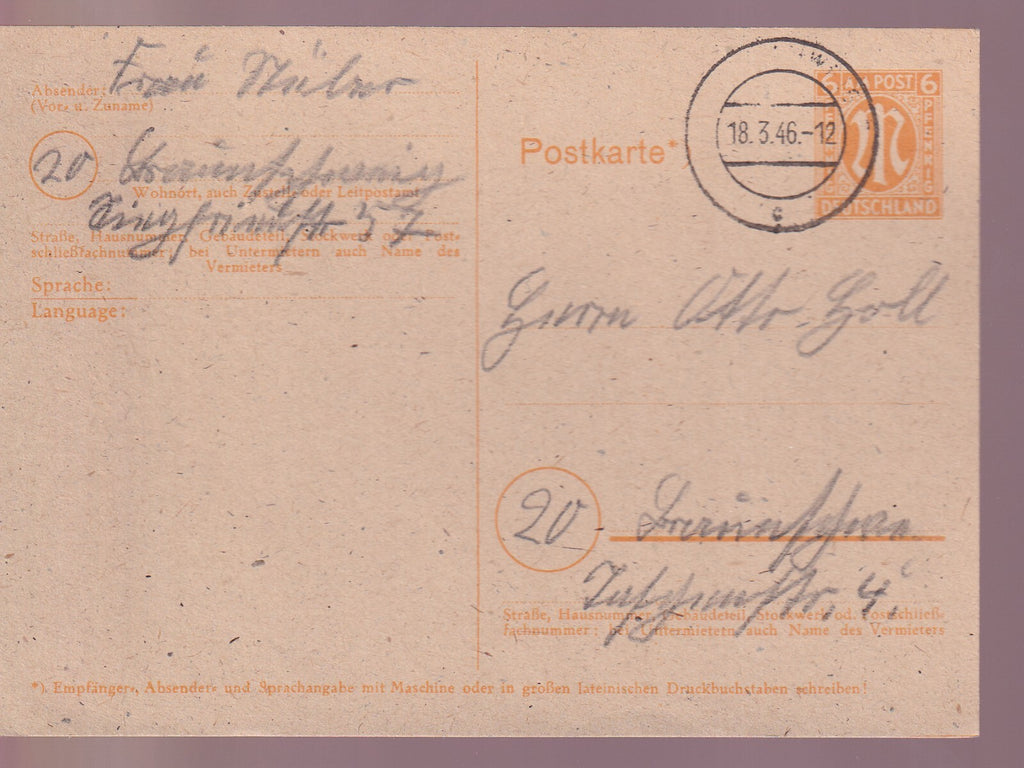 Absender:
Frau
(Vor- u. Zuname)
20 Braunschweig
Wohnort, auch Zustell- oder Leitpostamt
Siegfriedstr 57
Straße, Hausnummer, Gebäudeteil, Stockwerk oder Post-
schließfachnummer; bei Untermietern auch Name des
Vermieters
Sprache:
Language:
Postkarte*
18.3.46.-12
c
6 AM POST 6
PFENNIG PFENNIG
M
DEUTSCHLAND
Herrn Otto Holl
20 Braunschw.
4
Straße, Hausnummer, Gebäudeteil, Stockwerk od. Postschließ-
fachnummer: bei Untermietern auch Name des Vermieters
*) Empfänger-, Absender- und Sprachangabe mit Maschine oder in großen lateinischen Druckbuchstaben schreiben!